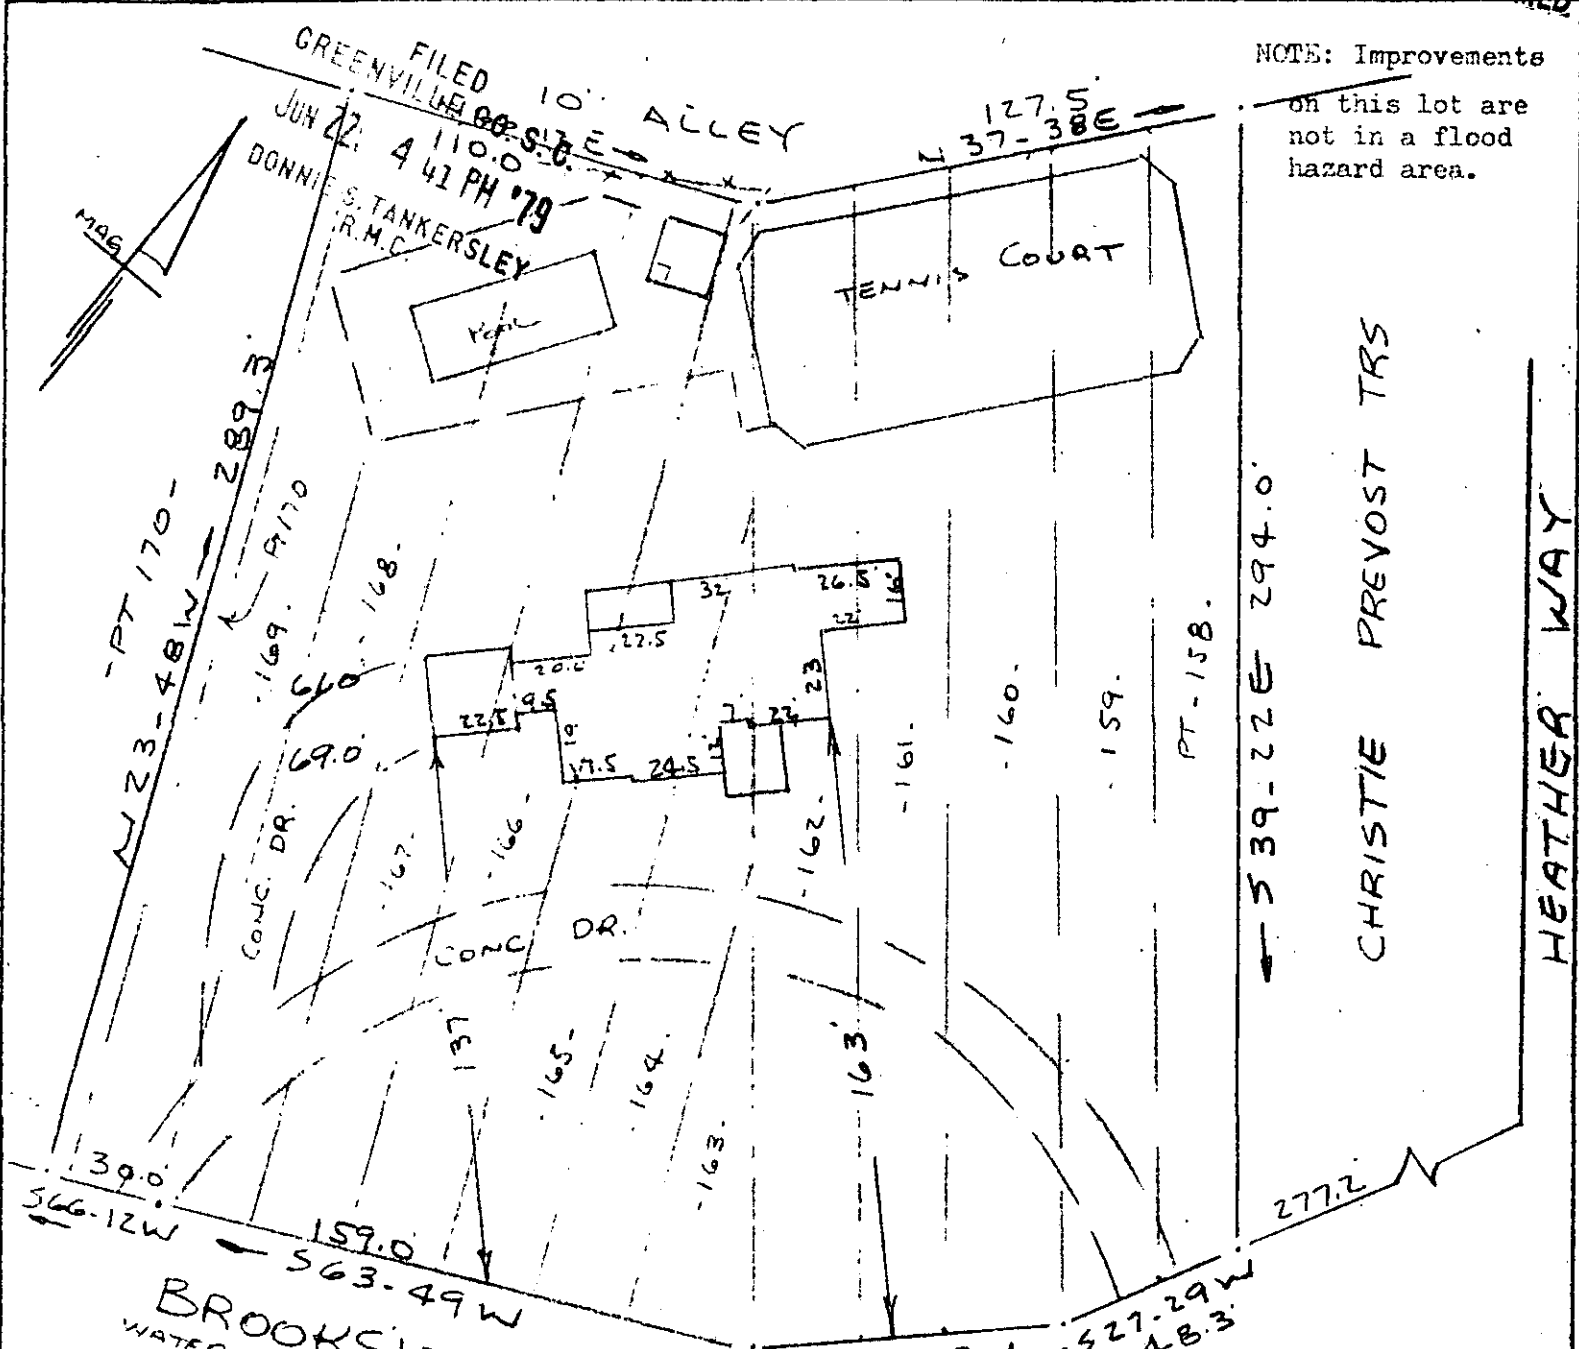 NOTE: Improvements
on this lot are
not in a flood
hazard area.
FILED
GREENVILLE CO. S. C.
JUN 22 4 41 PH '79
DONNIE S. TANKERSLEY
R.M.C.
10' ALLEY
110.0
E
127.5'
N 37-38E
MAG
TENNIS COURT
N 23-48W 289.3'
-PT 170-
PT 170
-169.
-168.
-167.
-166-
-165-
-164.
-163.
-162-
-161.
-160.
-159.
PT-158.
32
26.5'
16'
22'
22.5
20.0
23
9.5
22.5
10'
17.5
24.5
12
7'
22'
66.0
69.0'
CONC. DR.
CONC. DR.
137
163'
S 39-22E 294.0'
CHRISTIE PREVOST TRS
HEATHER WAY
39.0'
S66-12W
159.0
S63-49W
277.2'
S27-29W
48.3'